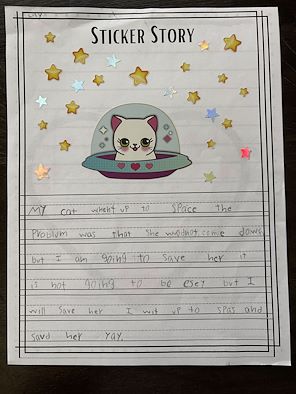 STICKER STORY
My cat whent up to space the
Problum was that she woodnot come down
but I am going to save her it
is not going to be esey but I
will save her I wit up to spas and
savd her yay.